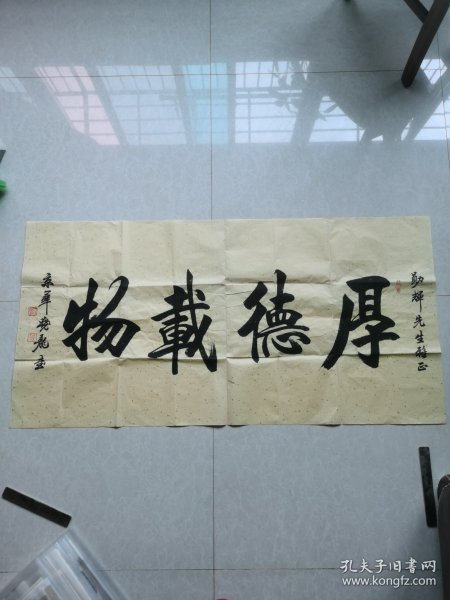 勤輝先生雅正
厚德載物
京華
孔夫子旧书网
www.kongfz.com